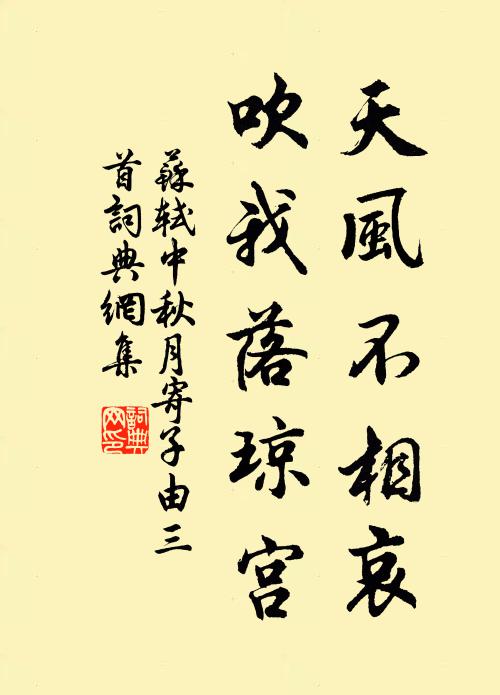 天風不相哀
吹我落琼宫
蘇軾中秋月寄子由三
首詞典網集
詞典
网印